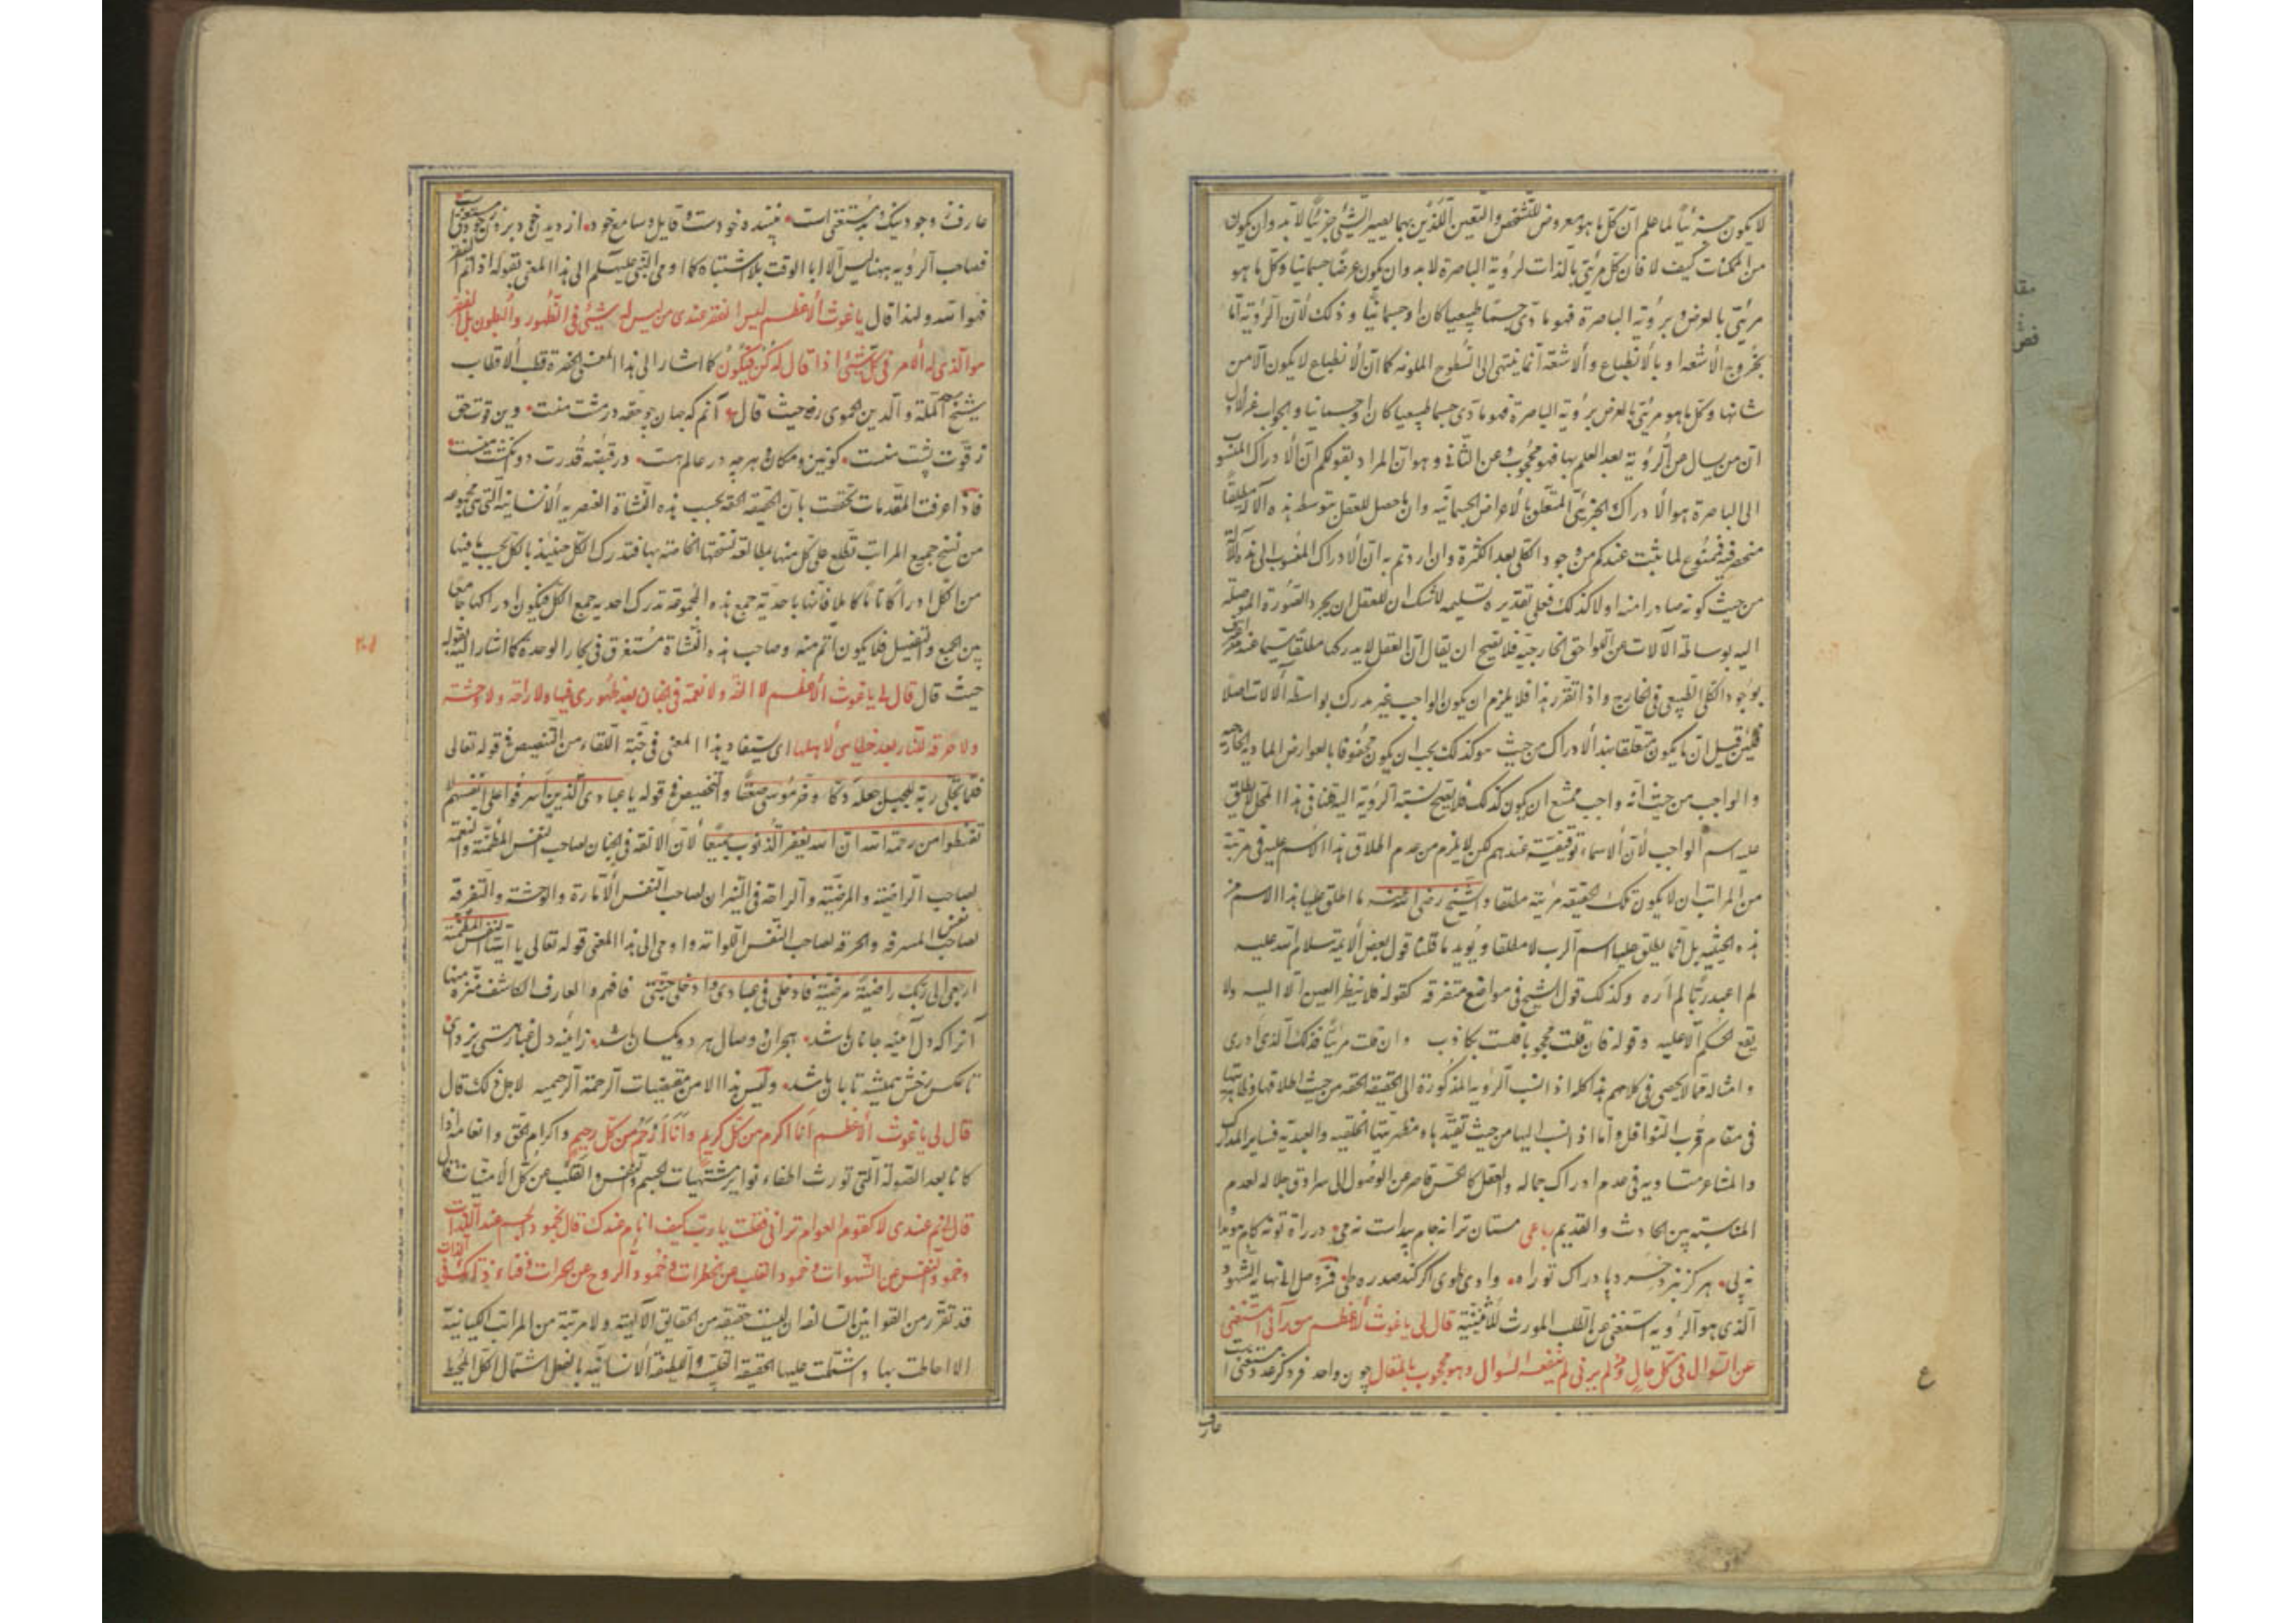 لا يكون جزئياً لما علم ان كل ما هو معروض للتشخص والتعين اللذين بهما يصير الشئ جزئياً لا بد وان يكون
من الممكنات كيف لا فان كل مرئى بالذات لرؤية الباصرة لا بد وان يكون عرضاً جسمانيا وكل ما هو
مرئى بالعرض برؤية الباصرة فهو مادى جسماً طبيعيا كان او جسمانيّاً وذلك لأن الرؤية امّا
بخروج الأشعة او بالأنطباع والأشعة انما ينتهى الى السطوح الملونه كما ان الأنطباع لا يكون الا من
شانها وكل ما هو مرئى بالعرض برؤية الباصرة فهو مادى جسما طبيعيا كان او جسمانيا والجواب
ان من يسال عن الرؤية بعد العلم بها فهو محجوب عن الثانى وهو ان المراد بقولكم ان الأدراك المنسوب
الى الباصرة هو الأدراك الجزئى المتعلق بالأعراض الجسمانيه وان ما حصل للعقل بتوسط هذه الآلة مطلقاً
منحصر فيه فممنوع لما يثبت عندكم من وجود الكلى بعد الكثرة وان اردتم به ان الأدراك المنسوب الى هذه الآلة
من حيث كونه صادرا منه اولا كذلك فعلى تقدير تسليمه لا شك ان للعقل ان يجرد الصورة الموصلة
اليه بوساطة الآلات عن اللواحق الخارجية فلا يصح ان يقال ان العقل لا يدركها مطلقا سيما عند
بوجود الكلى الطبيعى فى الخارج واذا تقرر هذا فلا يلزم ان يكون الواجب غير مدرك بواسطة الآلات اصلا
فلئن قيل ان ما يكون متعلقا بهذا الأدراك من حيث هو كذلك يجب ان يكون محفوفا بالعوارض المادية الخارجيه
والواجب من حيث انه واجب ممتنع ان يكون كذلك فلا يصح نسبة الرؤية اليه قلنا فى هذا المحل لا يطلق
عليه اسم الواجب لأن الأسماء توقيفيّة عندهم لكن لا يلزم من عدم اطلاق هذا الأسم عليه فى مرتبة
من المراتب ان لا يكون تلك الحقيقة مرئية مطلقا والشيخ رضى الله عنه ما اطلق عليها هذا الاسم من
هذه الحيثية بل انما يطلق عليها اسم الرب لا مطلقا ويؤيد ما قلنا قول بعض الأئمة سلام الله عليه
لم اعبد ربّاً لم اره وكذلك قول الشيخ فى مواضع متفرقة كقوله فلا ينظر العين الا اليه ولا
يقع الحكم الا عليه وقوله فان قلت محجوبا فلست بكاذب وان قلت مرئياً فذلك الذى ادرى
وامثاله مما لا يحصى فى كلامهم هذا كله اذا نسب الرؤية المذكورة الى الحقيقة الحقة من حيث اطلاقها
فى مقام قرب النوافل واما اذا نسب اليها من حيث تقيّدها ومظهريتها الخلقيه والعبدية فساير المدارك
والمشاعر متساويه فى عدم ادراك جماله والعقل كالحس قاصر عن الوصول الى سرادق جلاله لعدم
المناسبة بين الحادث والقديم رباعى مستان ترا نه جام پيداست نه مى در راه تو نه كام هويدا
نه پى هرگز نبرد خرد بادراك تو راه وادى طوى اگر كند صد ره طى فمن وصل الى نهاية الشهود
الذى هو الرؤيه استغنى عن الطلب المورث للأثنينية قال لى يا غوث الأعظم من رآنى استغنى
عن السوال فى كل حال ومن لم يرنى لم ينفعه السوال وهو محجوب بالمقال چون واحد فرد كرد
عارف
عارف ز وجود نيك و بد مستغنى است بيننده خودست و قايل و سامع خود از ديدن خود
فصاحب الرؤيه ههنا ليس الا ابا الوقت بلا اشتباه كما اومى النبى عليه السلم الى هذا المعنى بقوله اذا تم الفقر
فهو الله ولهذا قال يا غوث الأعظم ليس الفقر عندى من ليس له شئ فى الظهور والبطون بل الفقير
هو الذى له الأمر فى كل شئ اذا قال له كن فيكون كما اشار الى هذا المعنى حضرة قطب الأقطاب
شيخ سعد الملة والدين الحموى رض حيث قال آنم كه جهان چو حقه در مشت منست وين قوت حق
ز قوت پشت منست كونين و مكان و هرچه در عالم هست در قبضه قدرت دو انگشت منست
فاذا عرفت المقدمات تحققت بان الحقيقة الحقه بحسب هذه النشاة العنصريه الأنسانية التى هى مجموعه
من نسخ جميع المراتب تطلع على كل منها بمطالعة نسختها الخاصة بها فتدرك الكل حينئذ بالكل بحسب ما فيها
من الكل ادراكا تاما كاملا فانها باحدية جمع هذه المجموعة تدرك احديه جمع الكل فيكون ادراكها جامعا
بين الجمع والتفصيل فلا يكون اتم منه وصاحب هذه النشاة مستغرق فى بحار الوحدة كما اشار اليه بقوله
حيث قال قال لى يا غوث الأعظم لا الفة ولا نعمة فى الجنان بعد ظهورى فيها ولا راحة ولا وحشة
ولا حرقه للنار بعد خطابى لأهلها اى يستفاد هذا المعنى فى جنة اللقاء من التنصيص فى قوله تعالى
فلما تجلى ربه للجبل جعله دكا وخر موسى صعقا والتخصيص فى قوله يا عبادى الذين اسرفوا على انفسهم لا
تقنطوا من رحمة الله ان الله يغفر الذنوب جميعا لأن الالفة فى الجنان لصاحب النفس المطمئنة والنعمة
لصاحب الراضية والمرضيّة والراحة فى النيران لصاحب النفس الأمارة والوحشة والتفرقة
لصاحب النفس المسرفة والحرقة لصاحب النفس اللوامة واومى الى هذا المعنى قوله تعالى يا ايتها النفس المطمئنة
ارجعى الى ربك راضية مرضية فادخلى فى عبادى وادخلى جنتى فافهم والعارف الكاشف منزه منها
آنرا كه دل آينه جانان باشد هجران و وصال هر دو يكسان باشد ز آينه دل غبار هستى بزداى
تا عكس رخش هميشه تابان باشد وليس هذا الا من مقتضيات الرحمة الرحيميه لاجل ذلك قال
قال لى يا غوث الأعظم انا اكرم من كل كريم وانا ارحم من كل رحيم واكرام الحق وانعامه اذا
كانا بعد الصولة التى تورث اطفاء نواير مشتهيات الجسم والنفس والقلب عن كل الأمنيات قال
قال لى نم عندى لا كنوم العوام ترانى فقلت يا رب كيف انام عندك قال بخمود الجسم عن اللذات
وخمود النفس عن الشهوات وخمود القلب عن الخطرات وخمود الروح عن اللحظات وفناء ذاتك فى الذات
قد تقرر من القوانين السالفه ان ليست حقيقة من الحقايق الآلهية ولا مرتبة من المراتب الكيانية
الا احاطت بها واشتملت عليها الحقيقة القلبيه واللطيفة الأنسانيه بالفعل اشتمال الكل المحيط